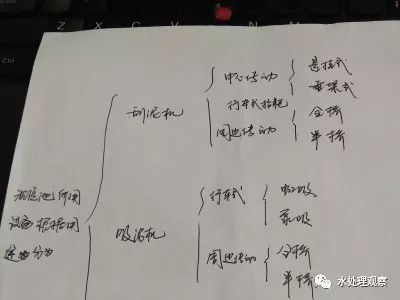 刮泥机
中心传动
悬挂式
垂架式
行车式抬耙
周边传动
全桥
半桥
沉淀池所用
设备根据用
途曲分为
吸泥机
行车式
虹吸
泵吸
周边传动
全桥
半桥
水处理观察
Ctrl
Z
X
C
V
B